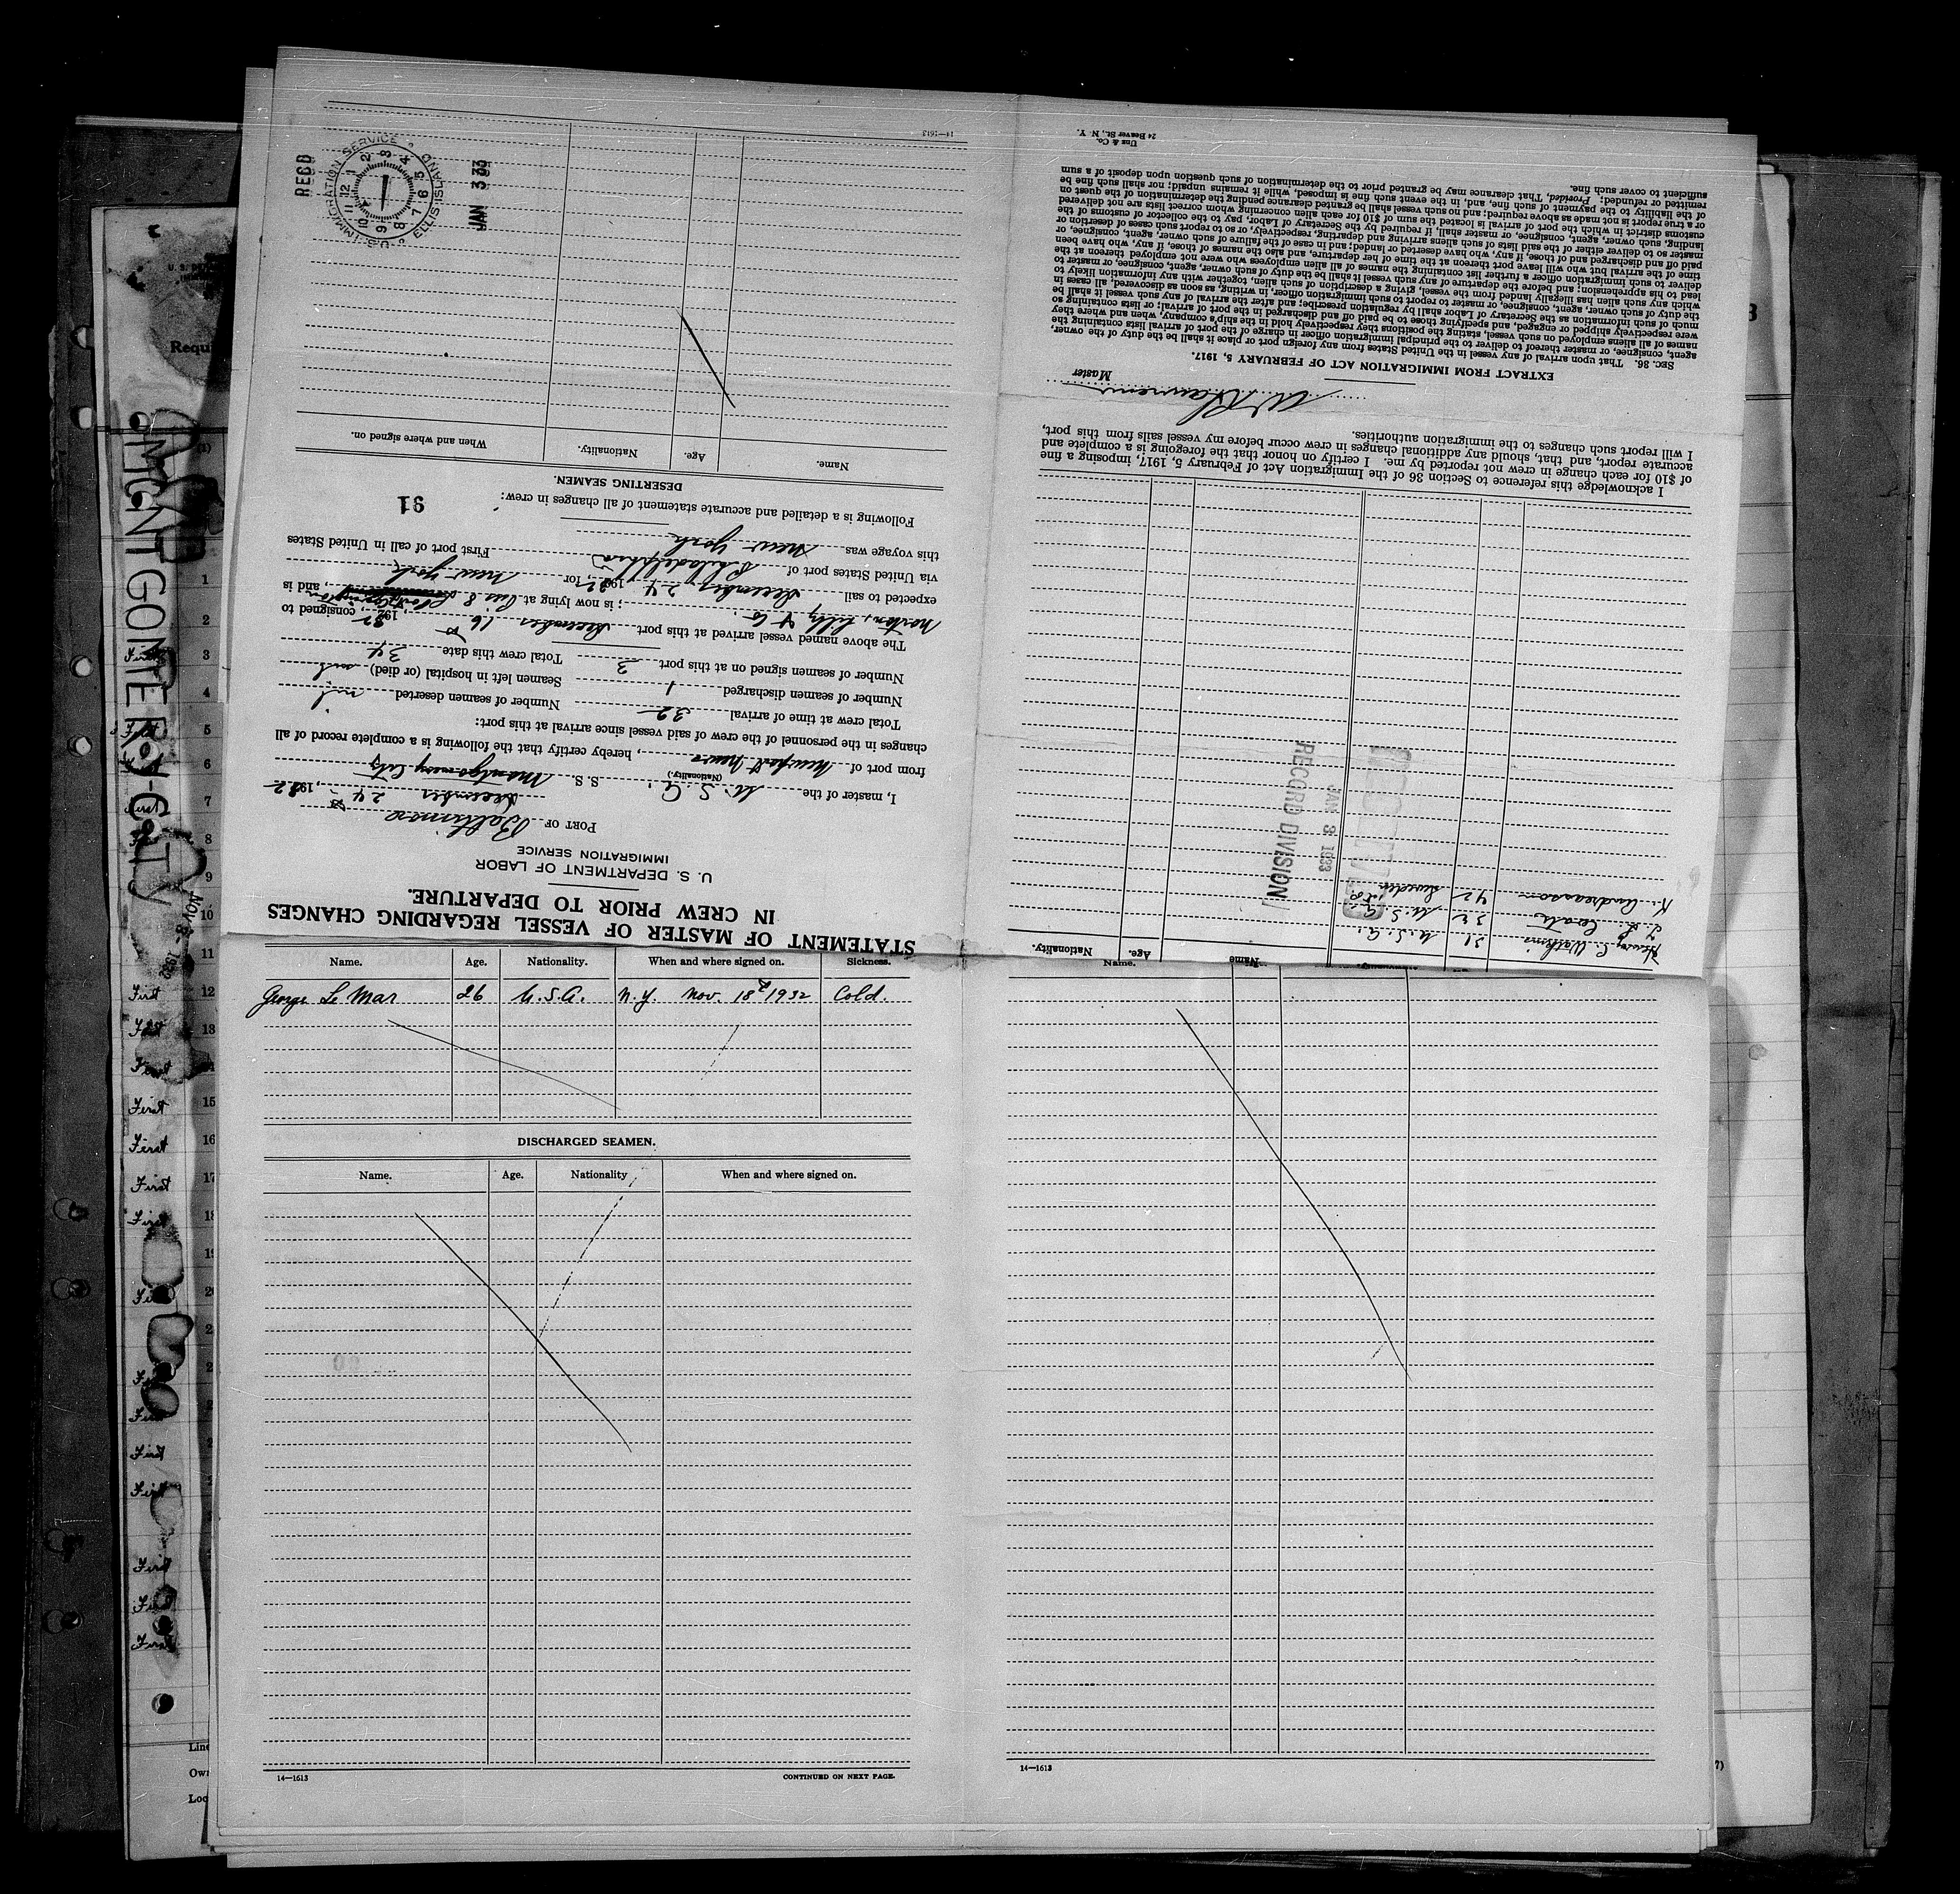 STATEMENT OF MASTER OF VESSEL REGARDING CHANGES
IN CREW PRIOR TO DEPARTURE.
U. S. DEPARTMENT OF LABOR
IMMIGRATION SERVICE
PORT OF Baltimore
December 24, 1932
I, master of the U.S.A. S. S. Montgomery City
(Nationality.)
from port of Newport News, hereby certify that the following is a complete record of all
changes in the personnel of the crew of said vessel since arrival at this port:
Total crew at time of arrival 32 Number of seamen deserted nil
Number of seamen discharged 1 Seamen left in hospital (or died) nil
Number of seamen signed on at this port 3 Total crew this date 34
The above named vessel arrived at this port December 16, 1932, consigned to
Norton, Lilly & Co.; is now lying at Pier 8, and is
expected to sail December 24, 1932, for New York
via United States port of Philadelphia First port of call in United States
this voyage was New York
Following is a detailed and accurate statement of all changes in crew:
91
DESERTING SEAMEN.
Name. Age. Nationality. When and where signed on.
REC'D
JAN 3 33
U.S. IMMIGRATION SERVICE
ELLIS ISLAND
14—1613
Name. Age. Nationality.
Name
Henry C. Watkins 31 U.S.A.
J. R. Coats 32 U.S.A.
K. Andreasson 42 Sweden
RECEIVED
JAN 3 1933
RECORD DIVISION
I acknowledge this reference to Section 36 of the Immigration Act of February 5, 1917, imposing a fine
of $10 for each change in crew not reported by me. I certify on honor that the foregoing is a complete and
accurate report, and that, should any additional changes in crew occur before my vessel sails from this port,
I will report such changes to the immigration authorities.
Master
EXTRACT FROM IMMIGRATION ACT OF FEBRUARY 5, 1917.
SEC. 36. That upon arrival of any vessel in the United States from any foreign port or place it shall be the duty of the owner,
agent, consignee, or master thereof to deliver to the principal immigration officer in charge of the port of arrival lists containing the
names of all aliens employed on such vessel, stating the positions they respectively hold in the ship's company, when and where they
were respectively shipped or engaged, and specifying those to be paid off and discharged in the port of arrival; or lists containing so
much of such information as the Secretary of Labor shall by regulation prescribe; and after the arrival of any such vessel it shall be
the duty of such owner, agent, consignee, or master to report to such immigration officer, in writing, as soon as discovered, all cases in
which any such alien has illegally landed from the vessel, giving a description of such alien, together with any information likely to
lead to his apprehension; and before the departure of any such vessel it shall be the duty of such owner, agent, consignee, or master to
deliver to such immigration officer a further list containing the names of all alien employees who were not employed thereon at the
time of the arrival but who will leave port thereon at the time of her departure, and also the names of those, if any, who have been
paid off and discharged and of those, if any, who have deserted or landed; and in case of the failure of such owner, agent, consignee, or
master so to deliver either of the said lists of such aliens arriving and departing, respectively, or so to report such cases of desertion or
landing, such owner, agent, consignee, or master shall, if required by the Secretary of Labor, pay to the collector of customs of the
customs district in which the port of arrival is located the sum of $10 for each alien concerning whom correct lists are not delivered
or a true report is not made as above required; and no such vessel shall be granted clearance pending the determination of the quest on
of the liability to the payment of such fine, and, in the event such fine is imposed, while it remains unpaid; nor shall such fine be
remitted or refunded; Provided, That clearance may be granted prior to the determination of such question upon deposit of a sum
sufficient to cover such fine.
Unz & Co.
24 Beaver St., N. Y.
Name. Age. Nationality. When and where signed on. Sickness.
George Le Mar 26 U.S.A. N.Y. Nov. 18 1932 Cold.
DISCHARGED SEAMEN.
Name. Age. Nationality When and where signed on.
14—1613 CONTINUED ON NEXT PAGE.
Name.
14—1613
Requi
MTGNT GOITE
CITY
NOV 8 - 1932
1
2
3
4
5
6
7
8
9
10
11
12
13
15
16
First
First
First
First
First
First
First
First
First
Line
Own
Loc